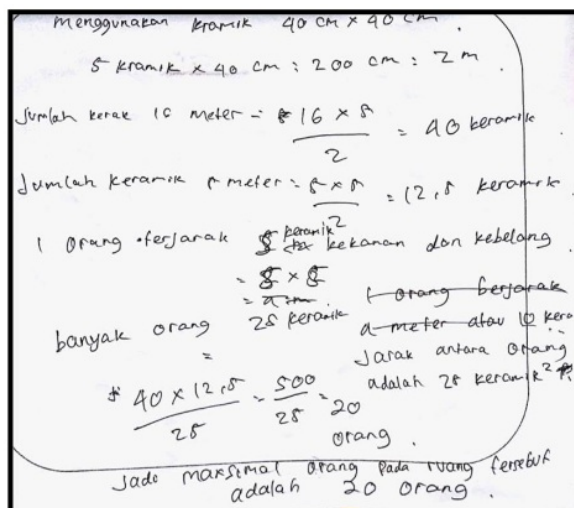 menggunakan kramik 40 cm x 40 cm.
5 kramik x 40 cm = 200 cm = 2 m
Jumlah kerak 16 meter = 16 x 5 / 2 = 40 keramik
Jumlah keramik 5 meter = 5 x 5 / 2 = 12,5 keramik
1 orang terjarak 5 keramik kekanan dan kebelang
= 5 x 5
1 orang berjarak
25 keramik
a meter atau 10 kera
banyak orang =
Jarak antara orang
adalah 25 keramik²
40 x 12,5 / 25 = 500 / 25 = 20
orang.
Jado maksimal orang pada ruang tersebut
adalah 20 orang.